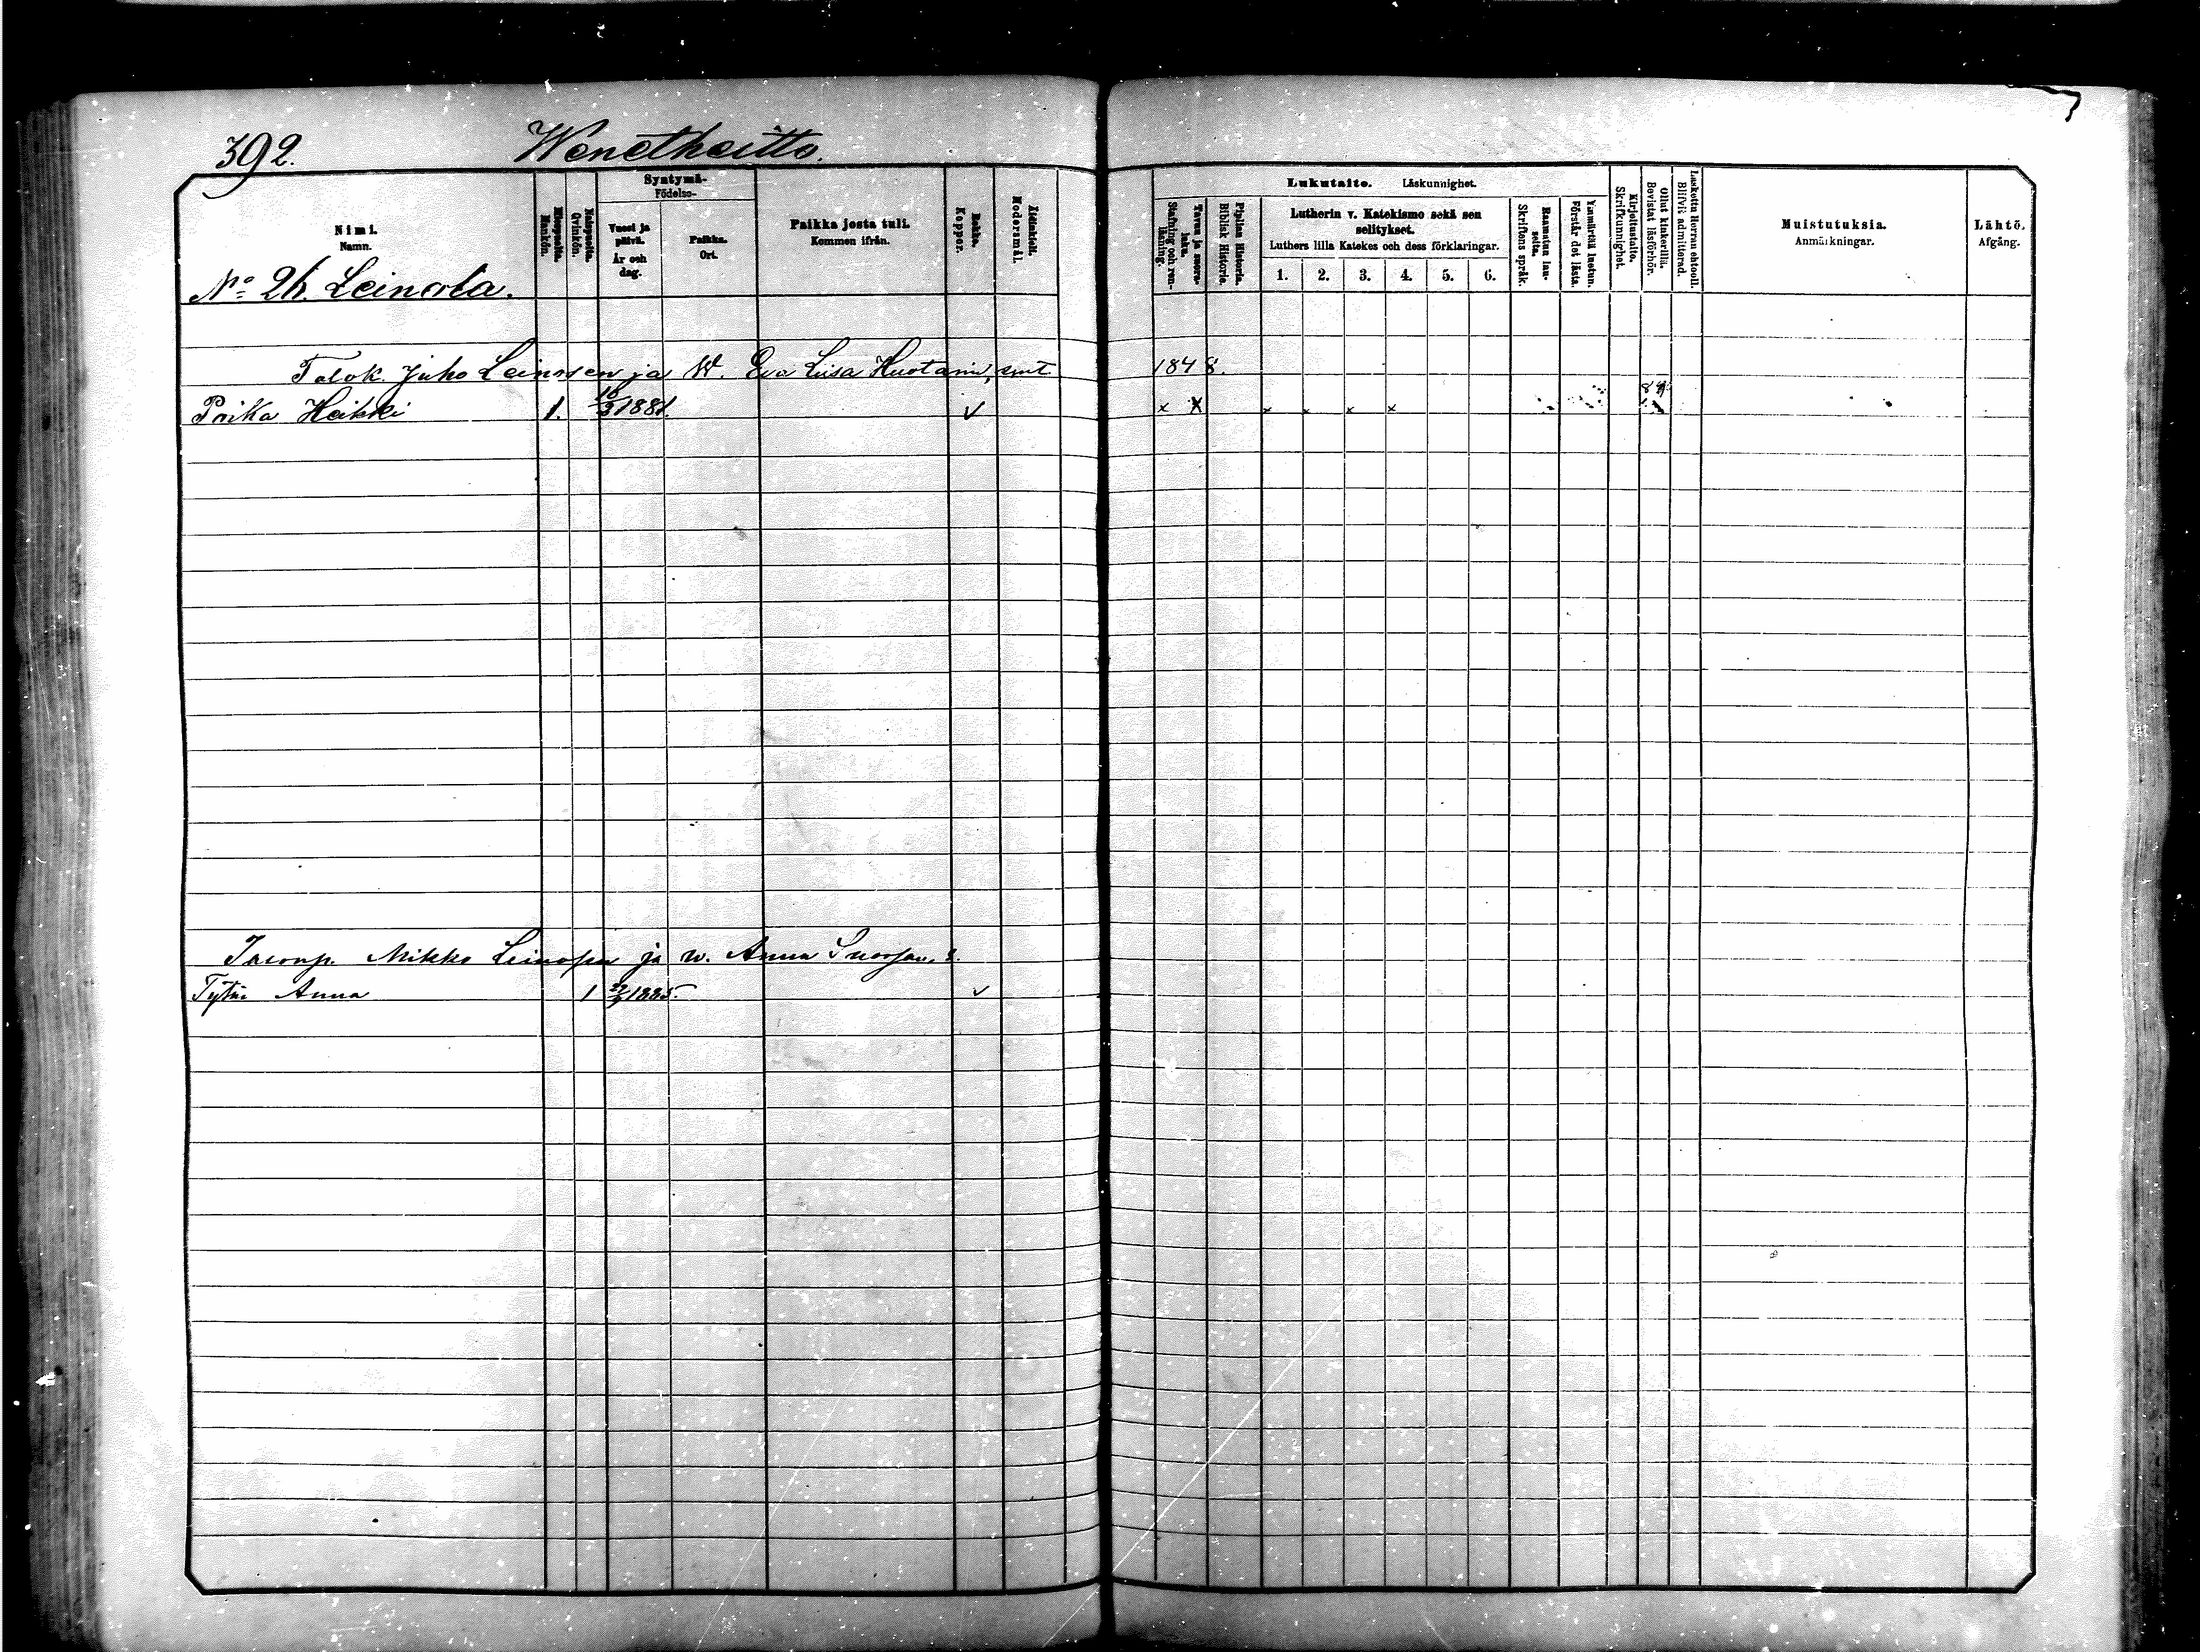 392. Wenetheitto.
Nimi.
Namn.
Miespuolia.
Mankön.
Naispuolia.
Qvinkön.
Syntymä-
Födelse-
Vuosi ja
päivä.
År och
dag.
Paikka.
Ort.
Paikka josta tuli.
Kommen ifrån.
Rokko.
Koppor.
Äidinkieli.
Modersmål.
Tavaa ja suora-
luku.
Stafning och ren-
läsning.
Piplian Historia.
Biblisk Historie.
Lukutaito. Läskunnighet.
Lutherin v. Katekismo sekä sen
selitykset.
Luthers lilla Katekes och dess förklaringar.
1. 2. 3. 4. 5. 6.
Raamatun lau-
seita.
Skriftens språk.
Ymmärtää luetun.
Förstår det lästa.
Kirjoitustaito.
Skrifkunnighet.
Ollut kinkerillä.
Bevistat läsförhör.
Laskettu Herran ehtooll.
Blifvit admitterad.
Muistutuksia.
Anmärkningar.
Lähtö.
Afgång.
No 26. Leinola.
Talok. Juho Leinosen ja W. Eva Liisa Huotarin, synt. 1848.
Poika Heikki 1. 10/3 1881. v x x x x x x 89
Mikko Leinosen ja w. Anna
Tytär Anna 1 1885. v